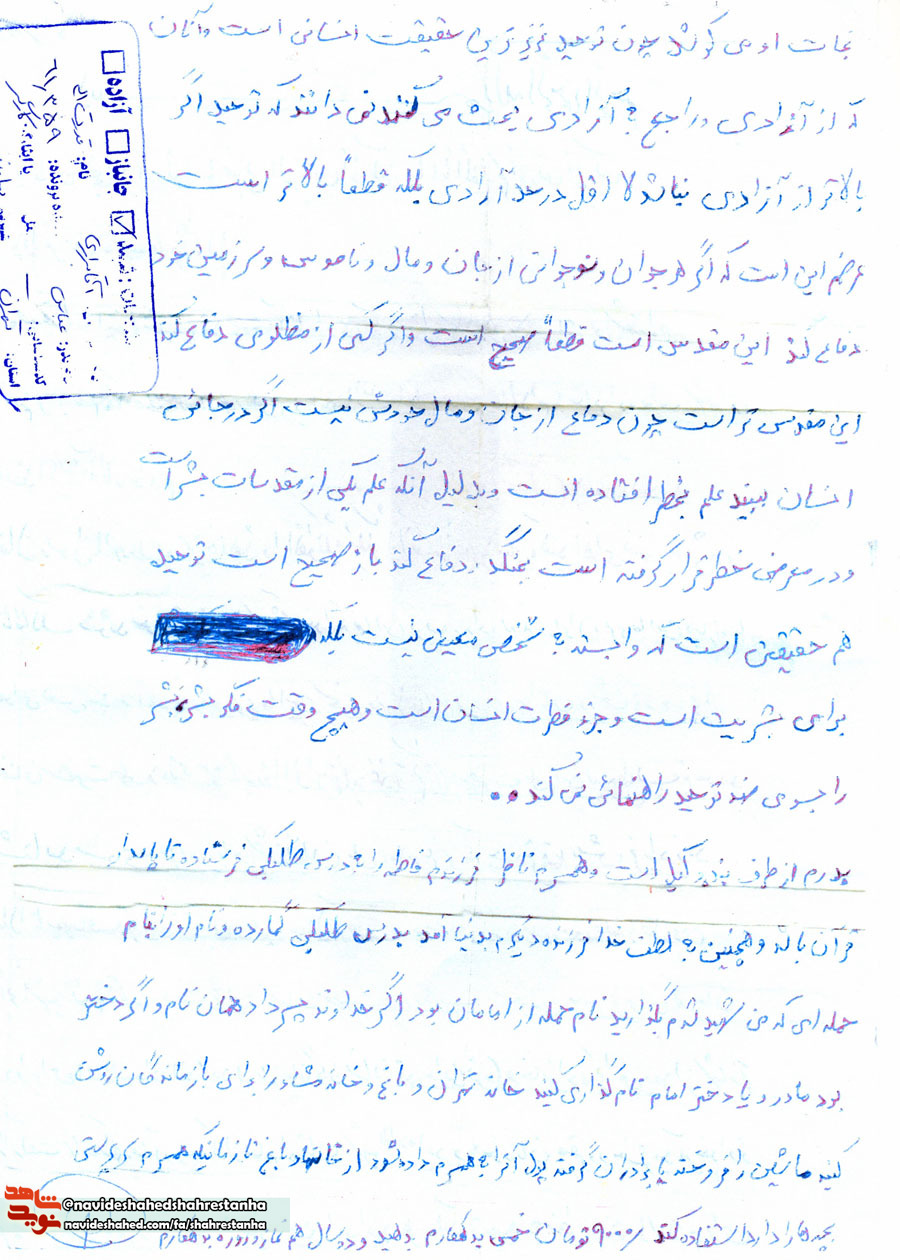 نجات او می کوشد چون توحید عزیزترین حقیقت انسانی است و آنان
که از آزادی و راجع به آزادی بحث می کنند نمی دانند که توحید اگر
بالاتر از آزادی نباشد لا اقل در حد آزادی بلکه قطعاً بالاتر است
عرضم این است که اگر هر جوان و نوجوانی از جان و مال و ناموس و سرزمین خود
دفاع کند این مقدس است قطعاً صحیح است و اگر کسی از مظلومی دفاع کند
این مقدس تر است چون دفاع از جان و مال خودش نیست اگر در جائی
انسان ببیند علم بخطر افتاده است و بدلیل آنکه علم یکی از مقدسات بشر است
و در معرض خطر قرار گرفته است بجنگد و دفاع کند باز صحیح است توحید
هم حقیقتی است که وابسته به شخص معینی نیست بلکه
برای بشریت است و جزء فطرت انسان است و هیچ وقت فکر بشر، بشر
را بسوی ضد توحید راهنمائی نمی کند..
پدرم از طرف بنده وکیل است و همسرم ناظر فرزندم فاطمه را به درس طلبگی فرستاده تا پاسدار
قرآن باشد و همچنین به لطف خدا فرزند دیگرم بدنیا آمد بدرس طلبگی گمارده و نام او را بنام
حمله ای که من شهید شدم بگذارید نام حمله از امامان بود اگر خداوند پسر داد همان نام و اگر دختر
بود مادر و یا دختر امام نام گذاری کنید خانه تهران و باغ و خانه را برای بازماندگان روشن
کنید ماشین را فروخته یا برادران گرفته پول آنرا به همسرم داده شود از خانه و باغ تا زمانیکه همسرم سرپرستی
بچه ها را دارد استفاده کند ۹۰۰۰ تومان خمس بدهکارم بدهید و دو سال هم نماز و روزه بدهکارم
آزاده
جانباز
شهید
نام:
شماره پرونده: ۶۱۱۳۵۹
نام پدر: عباس
استان: تهران
نوید شاهد
@navideshahedshahrestanha
navideshahed.com/fa/shahrestanha